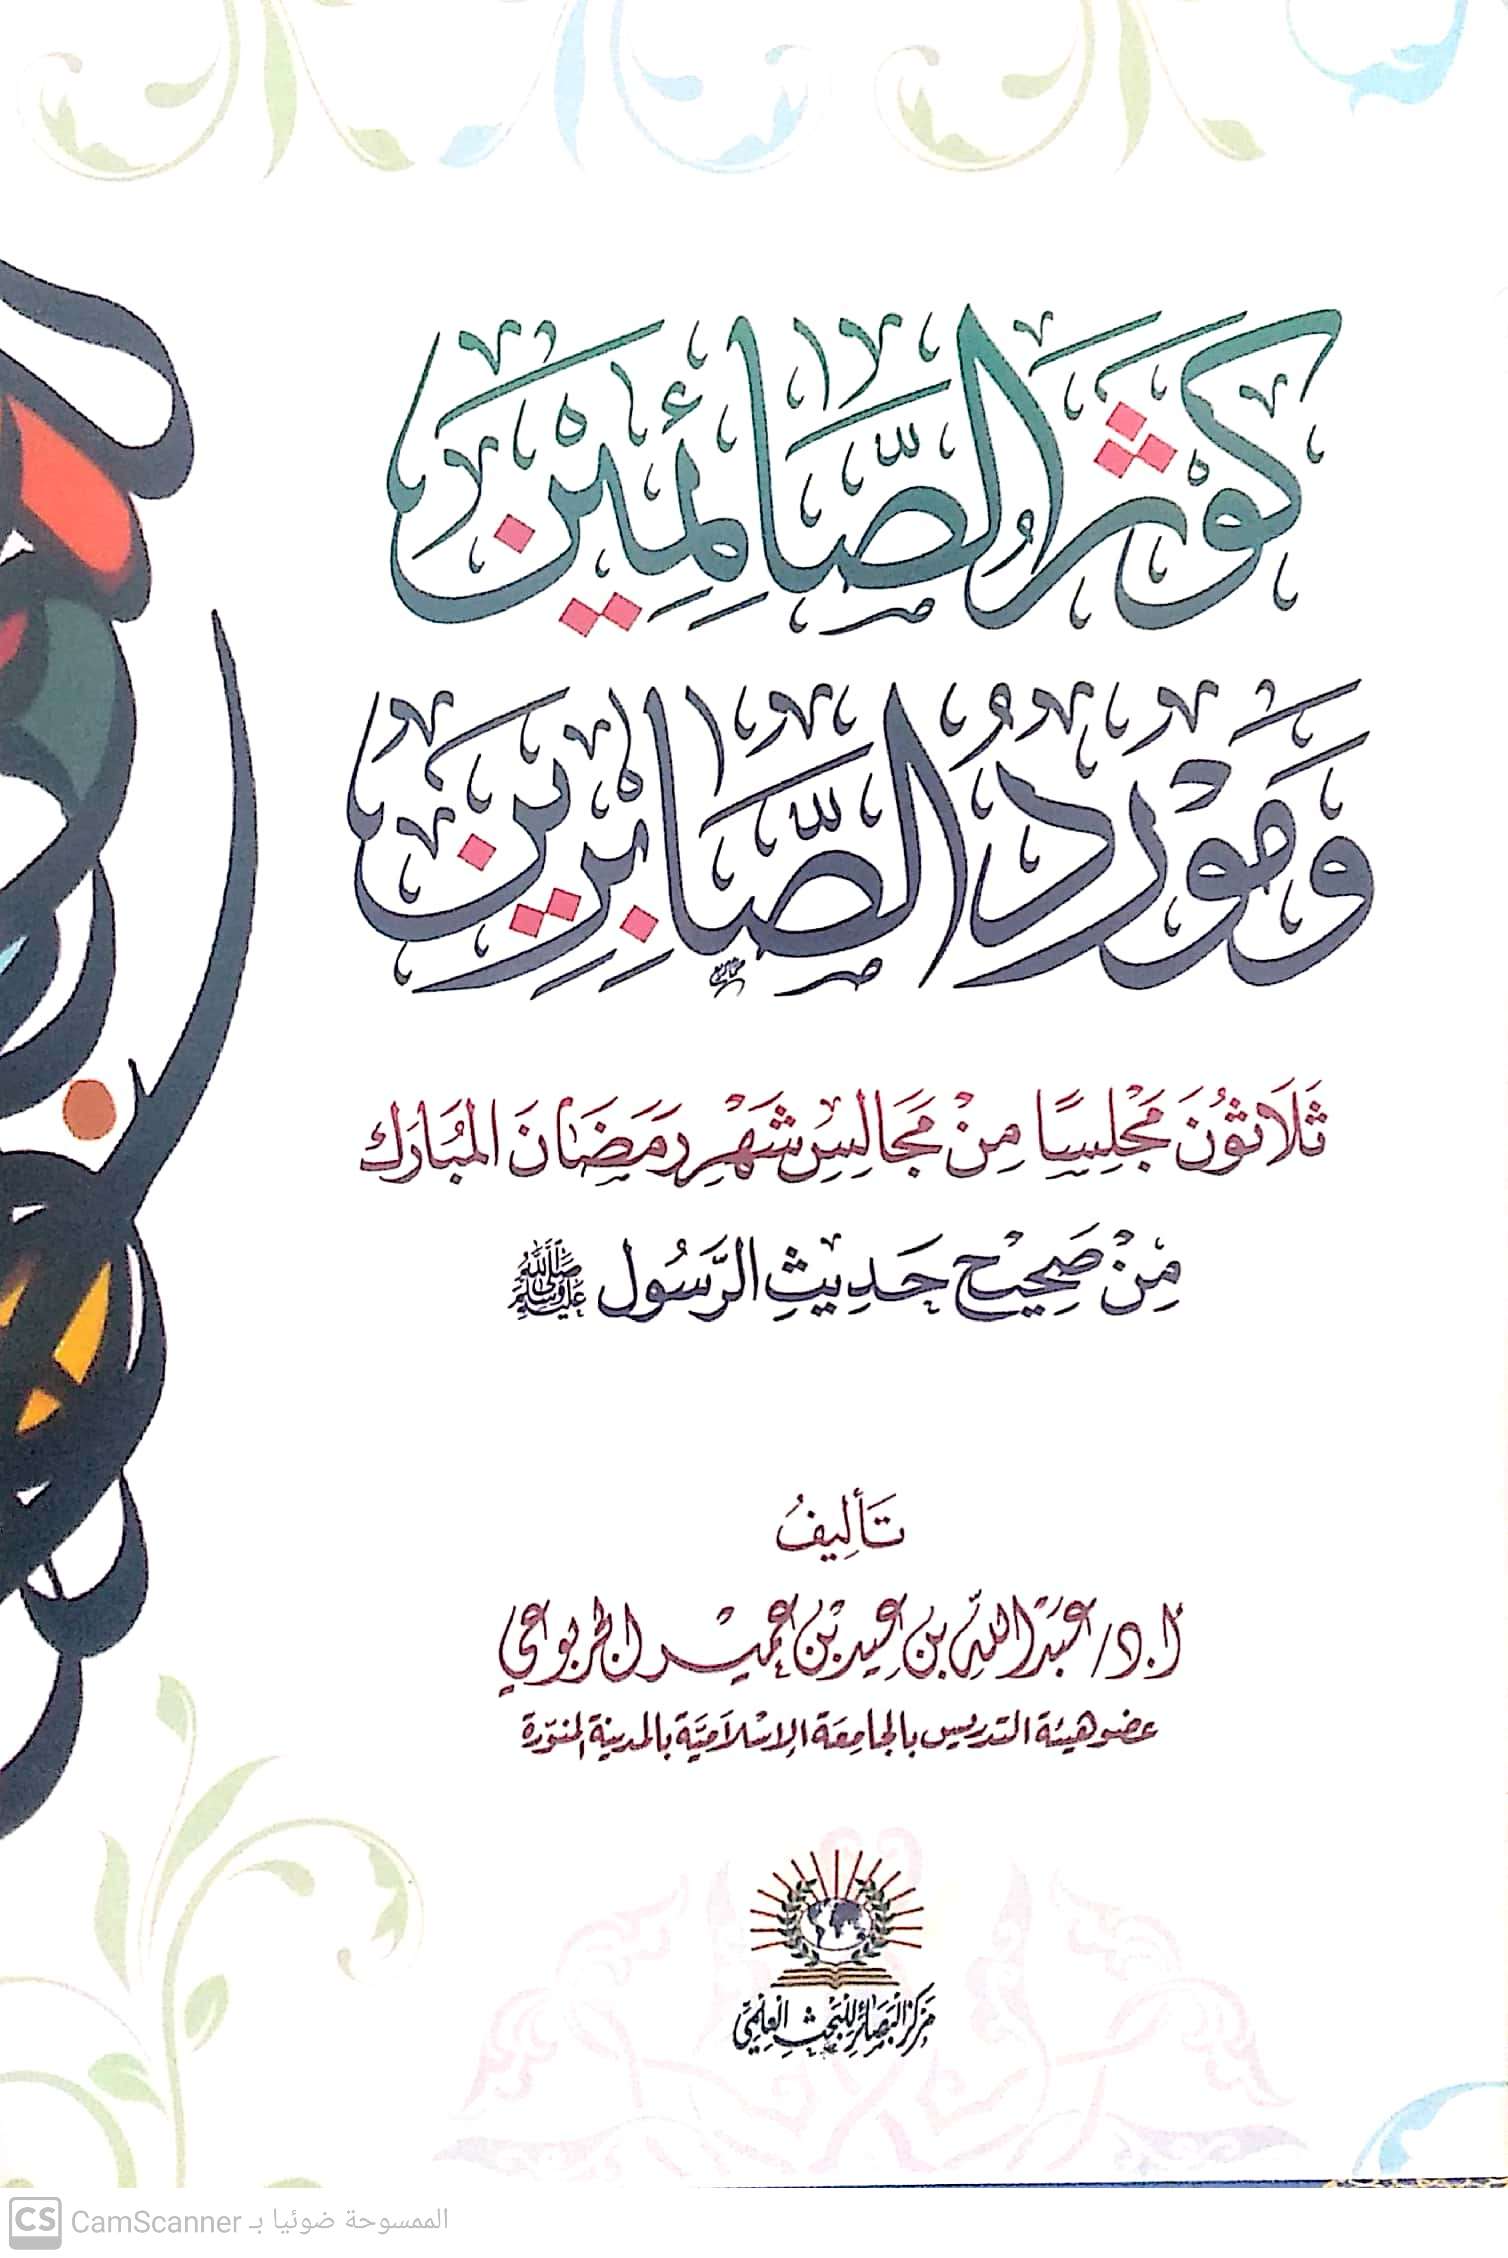 كَوْثَرُ الصَّائِمِيْنَ
وَمَوْرِدُ الصَّابِرِيْنَ
ثَلَاثُونَ مَجْلِسًا مِنْ مَجَالِسِ شَهْرِ رَمَضَانَ المُبَارَك
مِنْ صَحِيْحِ حَدِيْثِ الرَّسُول ﷺ
تَأليفُ
ا.د/عبد الله بن عيد بن عمير الجربوعي
عضو هيئة التدريس بالجامعة الإسلامية بالمدينة المنوّرة
مركز البصائر للبحث العلمي
CS CamScanner الممسوحة ضوئيا بـ